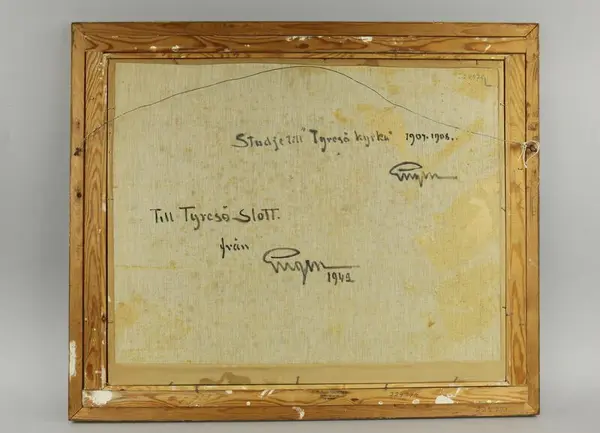 Studje till "Tyresö kyrka" 1907-1908.
Eugen
Till Tyresö-Slott.
från
Eugen
1942